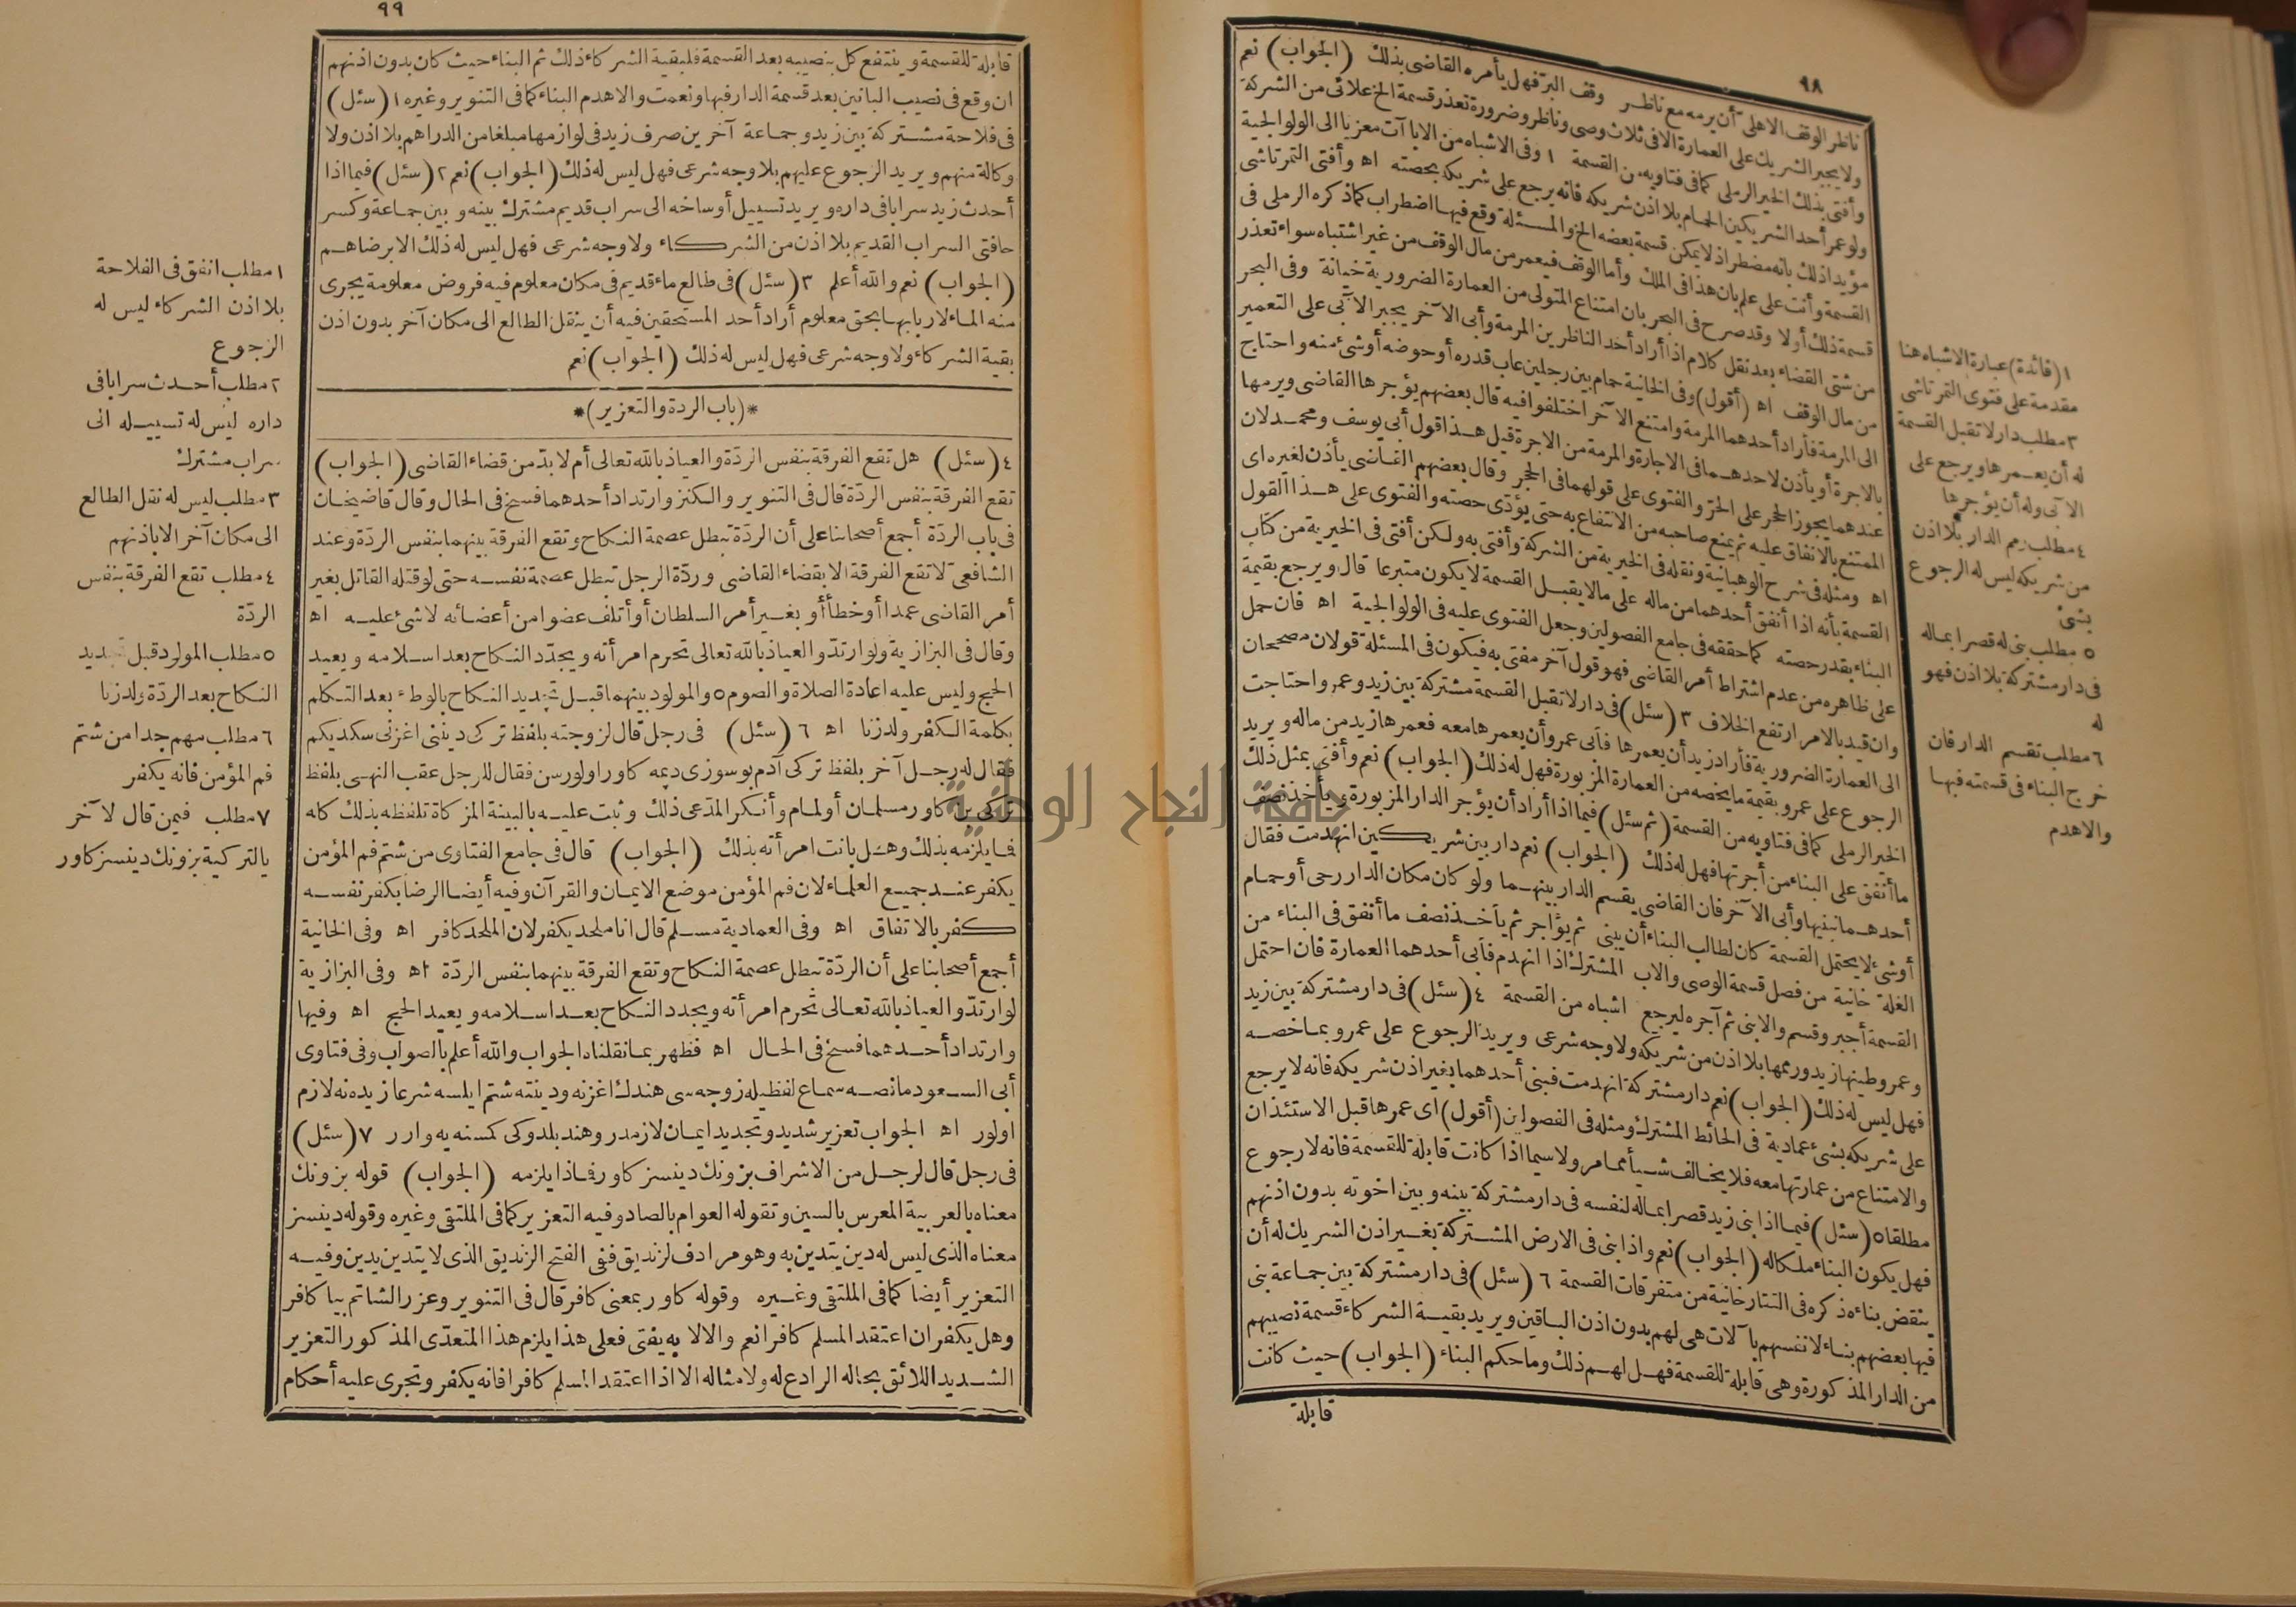 ٩٨
ناظر الوقف الاهلى أن يرمه مع ناظر وقف البر فهل يأمره القاضى بذلك (الجواب) نعم
ولا يجبر الشريك على العمارة الا فى ثلاث وصى وناظر وضرورة تعذر قسمة الخ علائى من الشركة
وأفتى بذلك الخير الرملى كما فى فتاويه من القسمة ١ وفى الاشباه من الاباآت معزيا الى الولوالجية
ولو عمر أحد الشريكين الحمام بلا اذن شريكه فانه يرجع على شريكه بحصته اه وأفتى التمرتاشى
مؤيدا ذلك بانه مضطر اذ لا يمكن قسمة بعضه الخ والمسئلة وقع فيها اضطراب كما ذكره الرملى فى
القسمة وأنت على علم بان هذا فى الملك وأما الوقف فيعمر من مال الوقف من غير اشتباه سواء تعذر
قسمة ذلك أولا وقد صرح فى البحر بان امتناع المتولى من العمارة الضرورية خيانة وفى البحر
من شتى القضاء بعد نقل كلام اذا أراد أحد الناظرين المرمة وأبى الآخر يجبر الآبى على التعمير
من مال الوقف اه (أقول) وفى الخانية حمام بين رجلين عاب قدره أو حوضه أو شئ منه واحتاج
الى المرمة فأراد أحدهما المرمة وامتنع الآخر اختلفوا فيه قال بعضهم يؤجرها القاضى ويرمها
بالاجرة أو يأذن لاحدهما فى الاجارة والمرمة من الاجرة قيل هذا قول أبى يوسف ومحمد لان
عندهما يجوز الحجر على الحر والفتوى على قولهما فى الحجر وقال بعضهم القاضى يأذن لغيره اى
الممتنع بالانفاق عليه ثم يمنع صاحبه من الانتفاع به حتى يؤدى حصته والفتوى على هذا القول
اه ومثله فى شرح الوهبانية ونقله فى الخيرية من الشركة وأفتى به ولكن أفتى فى الخيرية من كتاب
القسمة بأنه اذا أنفق أحدهما من ماله على مالا يقبل القسمة لا يكون متبرعا قال ويرجع بقيمة
البناء بقدر حصته كما حققه فى جامع الفصولين وجعل الفتوى عليه فى الولوالجية اه فان حمل
على ظاهره من عدم اشتراط أمر القاضى فهو قول آخر مفتى به فيكون فى المسئلة قولان مصححان
وان قيد بالامر ارتفع الخلاف ٣ (سئل) فى دار لا تقبل القسمة مشتركة بين زيد وعمرو احتاجت
الى العمارة الضرورية فأراد زيد أن يعمرها فأبى عمرو أن يعمرها معه فعمرها زيد من ماله ويريد
الرجوع على عمرو بقيمة ما يخصه من العمارة المزبورة فهل له ذلك (الجواب) نعم وأفتى بمثل ذلك
الخير الرملى كما فى فتاويه من القسمة (ثم سئل) فيما اذا أراد أن يؤجر الدار المزبورة ويأخذ نصف
ما أنفق على البناء من أجرتها فهل له ذلك (الجواب) نعم دار بين شريكين انهدمت فقال
أحدهما نبنيها وأبى الآخر فان القاضى يقسم الدار بينهما ولو كان مكان الدار رحى أو حمام
أو شئ لا يحتمل القسمة كان لطالب البناء أن يبنى ثم يؤاجر ثم يأخذ نصف ما أنفق فى البناء من
الغلة خانية من فصل قسمة الوصى والاب المشترك اذا انهدم فأبى أحدهما العمارة فان احتمل
القسمة أجبر وقسم والا بنى ثم آجره ليرجع اشباه من القسمة ٤ (سئل) فى دار مشتركة بين زيد
وعمرو طينها زيد ورمها بلا اذن من شريكه ولا وجه شرعى ويريد الرجوع على عمرو بما خصه
فهل ليس له ذلك (الجواب) نعم دار مشتركة انهدمت فبنى أحدهما بغير اذن شريكه فانه لا يرجع
على شريكه بشئ عمادية فى الحائط المشترك ومثله فى الفصولين (أقول) اى عمرها قبل الاستئذان
والامتناع من عمارتها معه فلا يخالف شيأ مما مر ولا سيما اذا كانت قابلة للقسمة فانه لا رجوع
مطلقا ٥ (سئل) فيما اذا بنى زيد قصرا بماله لنفسه فى دار مشتركة بينه وبين اخوته بدون اذنهم
فهل يكون البناء ملكا له (الجواب) نعم واذا بنى فى الارض المشتركة بغير اذن الشريك له أن
ينقض بناءه ذكره فى التتارخانية من متفرقات القسمة ٦ (سئل) فى دار مشتركة بين جماعة بنى
فيها بعضهم بناء لانفسهم بآلات هى لهم بدون اذن الباقين ويريد بقية الشركاء قسمة نصيبهم
من الدار المذكورة وهى قابلة للقسمة فهل لهم ذلك وما حكم البناء (الجواب) حيث كانت
قابلة
١ (فائدة) عبارة الاشباه هنا
مقدمة على فتوى التمرتاشى
٣ مطلب دار لا تقبل القسمة
له أن يعمرها ويرجع على
الآبى وله أن يؤجرها
٤ مطلب رم الدار بلا اذن
من شريكه ليس له الرجوع
بشئ
٥ مطلب بنى له قصرا بماله
فى دار مشتركة بلا اذن فهو
له
٦ مطلب تقسم الدار فان
خرج البناء فى قسمته فبها
والا هدم
٩٩
قابلة للقسمة وينتفع كل بنصيبه بعد القسمة فلبقية الشركاء ذلك ثم البناء حيث كان بدون اذنهم
ان وقع فى نصيب البانين بعد قسمة الدار فبها ونعمت والا هدم البناء كما فى التنوير وغيره ١ (سئل)
فى فلاحة مشتركة بين زيد وجماعة آخرين صرف زيد فى لوازمها مبلغا من الدراهم بلا اذن ولا
وكالة منهم ويريد الرجوع عليهم بلا وجه شرعى فهل ليس له ذلك (الجواب) نعم ٢ (سئل) فيما اذا
أحدث زيد سرابا فى داره ويريد تسييل أوساخه الى سراب قديم مشترك بينه وبين جماعة وكسر
حافتى السراب القديم بلا اذن من الشركاء ولا وجه شرعى فهل ليس له ذلك الا برضاهم
(الجواب) نعم والله أعلم ٣ (سئل) فى طالع ماء قديم فى مكان معلوم فيه فروض معلومة يجرى
منه الماء لاربابها بحق معلوم أراد أحد المستحقين فيه أن ينقل الطالع الى مكان آخر بدون اذن
بقية الشركاء ولا وجه شرعى فهل ليس له ذلك (الجواب) نعم
*(باب الردة والتعزير)*
٤ (سئل) هل تقع الفرقة بنفس الردّة والعياذ بالله تعالى أم لا بدّ من قضاء القاضى (الجواب)
تقع الفرقة بنفس الردّة قال فى التنوير والكنز وارتداد أحدهما فسخ فى الحال وقال قاضيخان
فى باب الردّة أجمع أصحابنا على أن الردّة تبطل عصمة النكاح وتقع الفرقة بينهما بنفس الردّة وعند
الشافعى لا تقع الفرقة الا بقضاء القاضى وردّة الرجل تبطل عصمة نفسه حتى لو قتله القاتل بغير
أمر القاضى عمدا أو خطأ أو بغير أمر السلطان أو أتلف عضوا من أعضائه لا شئ عليه اه
وقال فى البزازية ولو ارتدّ والعياذ بالله تعالى تحرم امرأته ويجدّد النكاح بعد اسلامه ويعيد
الحج وليس عليه اعادة الصلاة والصوم ٥ والمولود بينهما قبل تجديد النكاح بالوطء بعد التكلم
بكلمة الكفر ولد زنا اه ٦ (سئل) فى رجل قال لزوجته بلفظ تركى دينى اغزنى سكديكم
فقال له رجل آخر بلفظ تركى آدم بو سوزى ديمه كاور اولورسن فقال للرجل عقب النهى بلفظ
تركى بر كاور مسلمان أولمام وأنكر المدّعى ذلك وثبت عليه بالبينة المزكاة تلفظه بذلك كله
فما يلزمه بذلك وهل بانت امرأته بذلك (الجواب) قال فى جامع الفتاوى من شتم فم المؤمن
يكفر عند جميع العلماء لان فم المؤمن موضع الايمان والقرآن وفيه أيضا الرضا بكفر نفسه
كفر بالاتفاق اه وفى العمادية مسلم قال انا ملحد يكفر لان الملحد كافر اه وفى الخانية
أجمع أصحابنا على أن الردّة تبطل عصمة النكاح وتقع الفرقة بينهما بنفس الردّة اه وفى البزازية
لو ارتدّ والعياذ بالله تعالى تحرم امرأته ويجدد النكاح بعد اسلامه ويعيد الحج اه وفيها
وارتداد أحدهما فسخ فى الحال اه فظهر بما نقلناه الجواب والله أعلم بالصواب وفى فتاوى
أبى السعود ما نصه سماع لفظيله زوجه سى هندك اغزنه ودينته شتم ايلسه شرعا زيده نه لازم
اولور اه الجواب تعزير شديد وتجديد ايمان لازمدر وهند بلدوكى كمسنه يه وارر ٧ (سئل)
فى رجل قال لرجل من الاشراف بزونك دينسز كاور فماذا يلزمه (الجواب) قوله بزونك
معناه بالعربية المعرس بالسين وتقوله العوام بالصاد وفيه التعزير كما فى الملتقى وغيره وقوله دينسز
معناه الذى ليس له دين يتدين به وهو مرادف لزنديق ففى الفتح الزنديق الذى لا يتدين بدين وفيه
التعزير أيضا كما فى الملتقى وغيره وقوله كاور بمعنى كافر قال فى التنوير وعزر الشاتم بيا كافر
وهل يكفر ان اعتقد المسلم كافرا نعم والا لا به يفتى فعلى هذا يلزم هذا المتعدّى المذكور التعزير
الشديد اللائق بحاله الرادع له ولامثاله الا اذا اعتقد المسلم كافرا فانه يكفر وتجرى عليه أحكام
١ مطلب انفق فى الفلاحة
بلا اذن الشركاء ليس له
الرجوع
٢ مطلب أحدث سرابا فى
داره ليس له تسييله الى
سراب مشترك
٣ مطلب ليس له نقل الطالع
الى مكان آخر الا باذنهم
٤ مطلب تقع الفرقة بنفس
الردّة
٥ مطلب المولود قبل تجديد
النكاح بعد الردّة ولد زنا
٦ مطلب مهم جدا من شتم
فم المؤمن فانه يكفر
٧ مطلب فيمن قال لآخر
بالتركية بزونك دينسز كاور
جامعة النجاح الوطنية